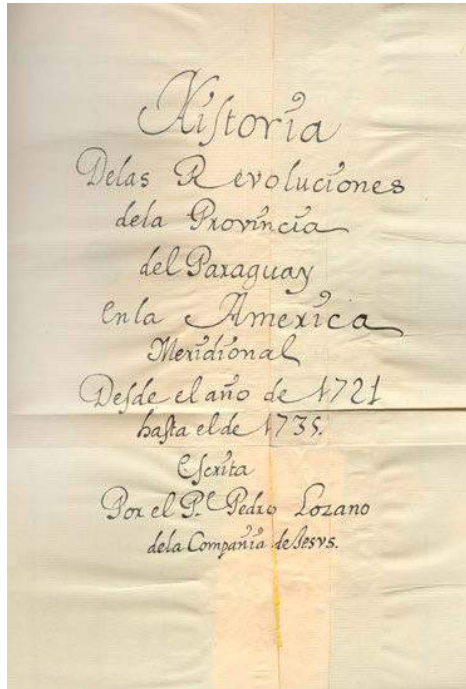 Hiſtoria
Delas Revoluciones
dela Provincia
del Paraguay
En la America
Meridional
Deſde el año de 1721
haſta el de 1735.
Eſcrita
Por el P.ᵉ Pedro Lozano
dela Compañia de Jesvs.